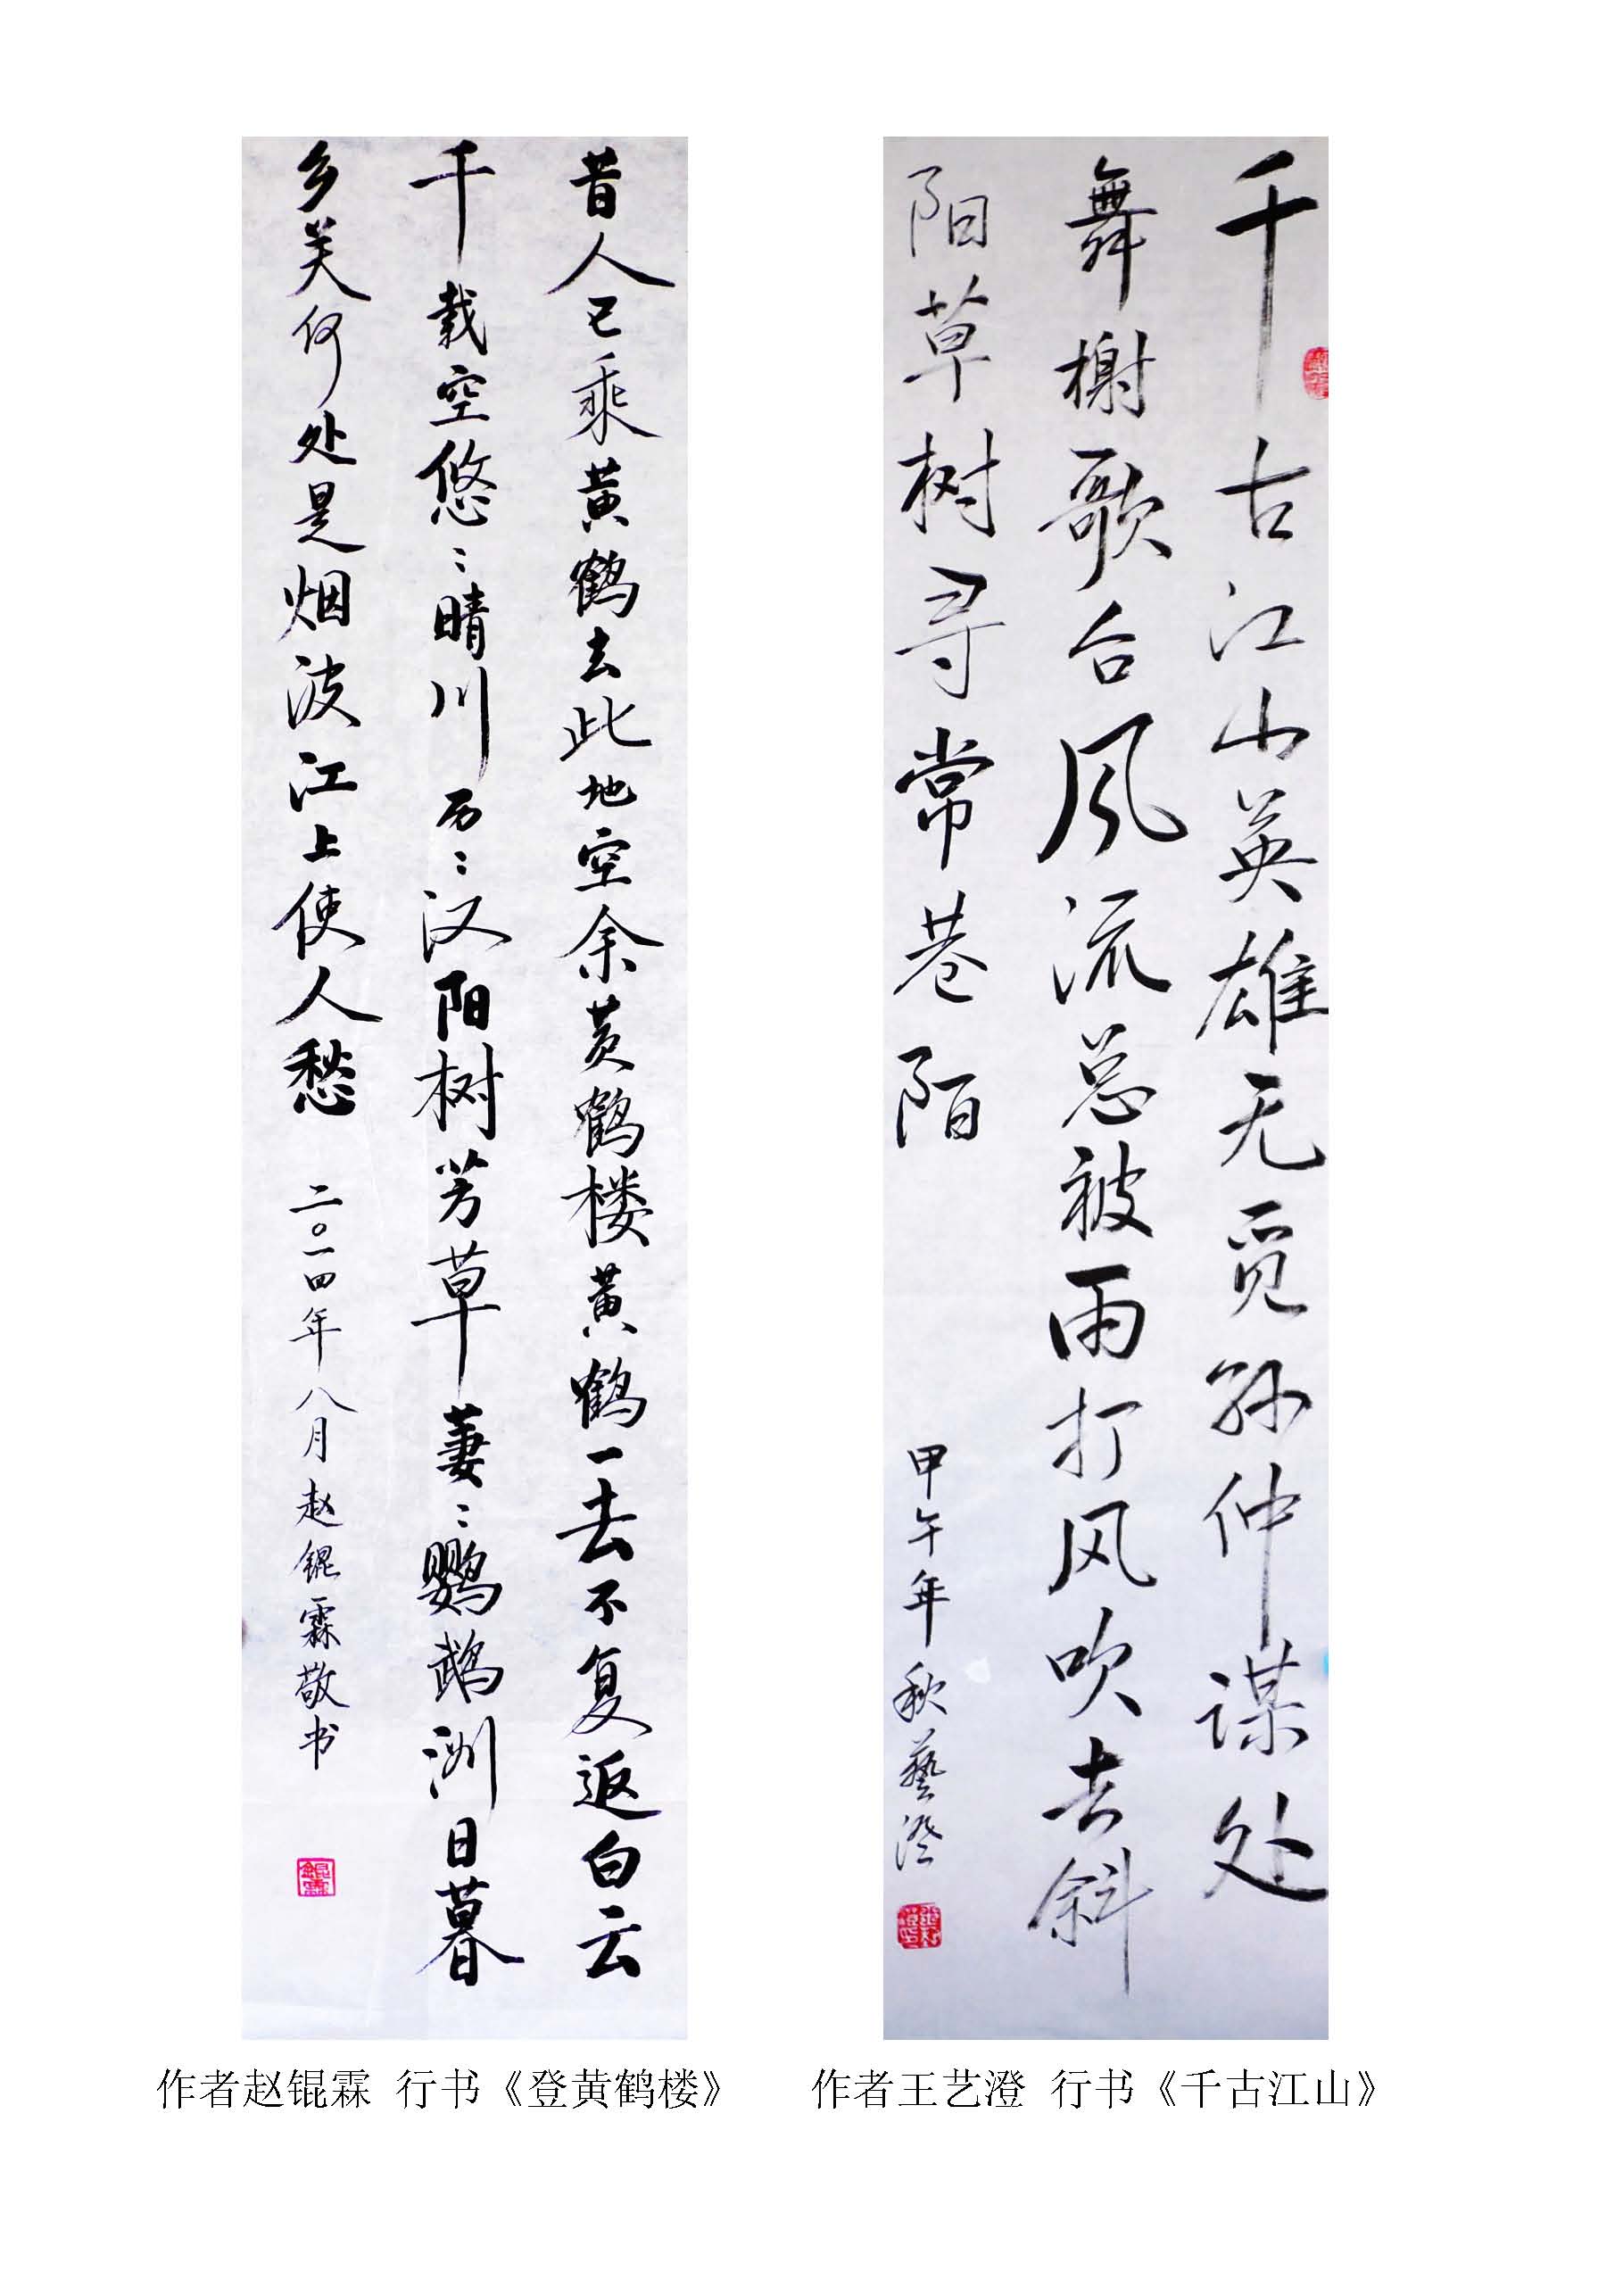 昔人已乘黄鹤去此地空余黄鹤楼黄鹤一去不复返白云
千载空悠〻晴川历〻汉阳树芳草萋〻鹦鹉洲日暮
乡关何处是烟波江上使人愁
二〇一四年八月赵锟霖敬书
锟霖
千古江山英雄无觅孙仲谋处
舞榭歌台风流总被雨打风吹去斜
阳草树寻常巷陌
甲午年秋藝澄
作者赵锟霖 行书《登黄鹤楼》
作者王艺澄 行书《千古江山》